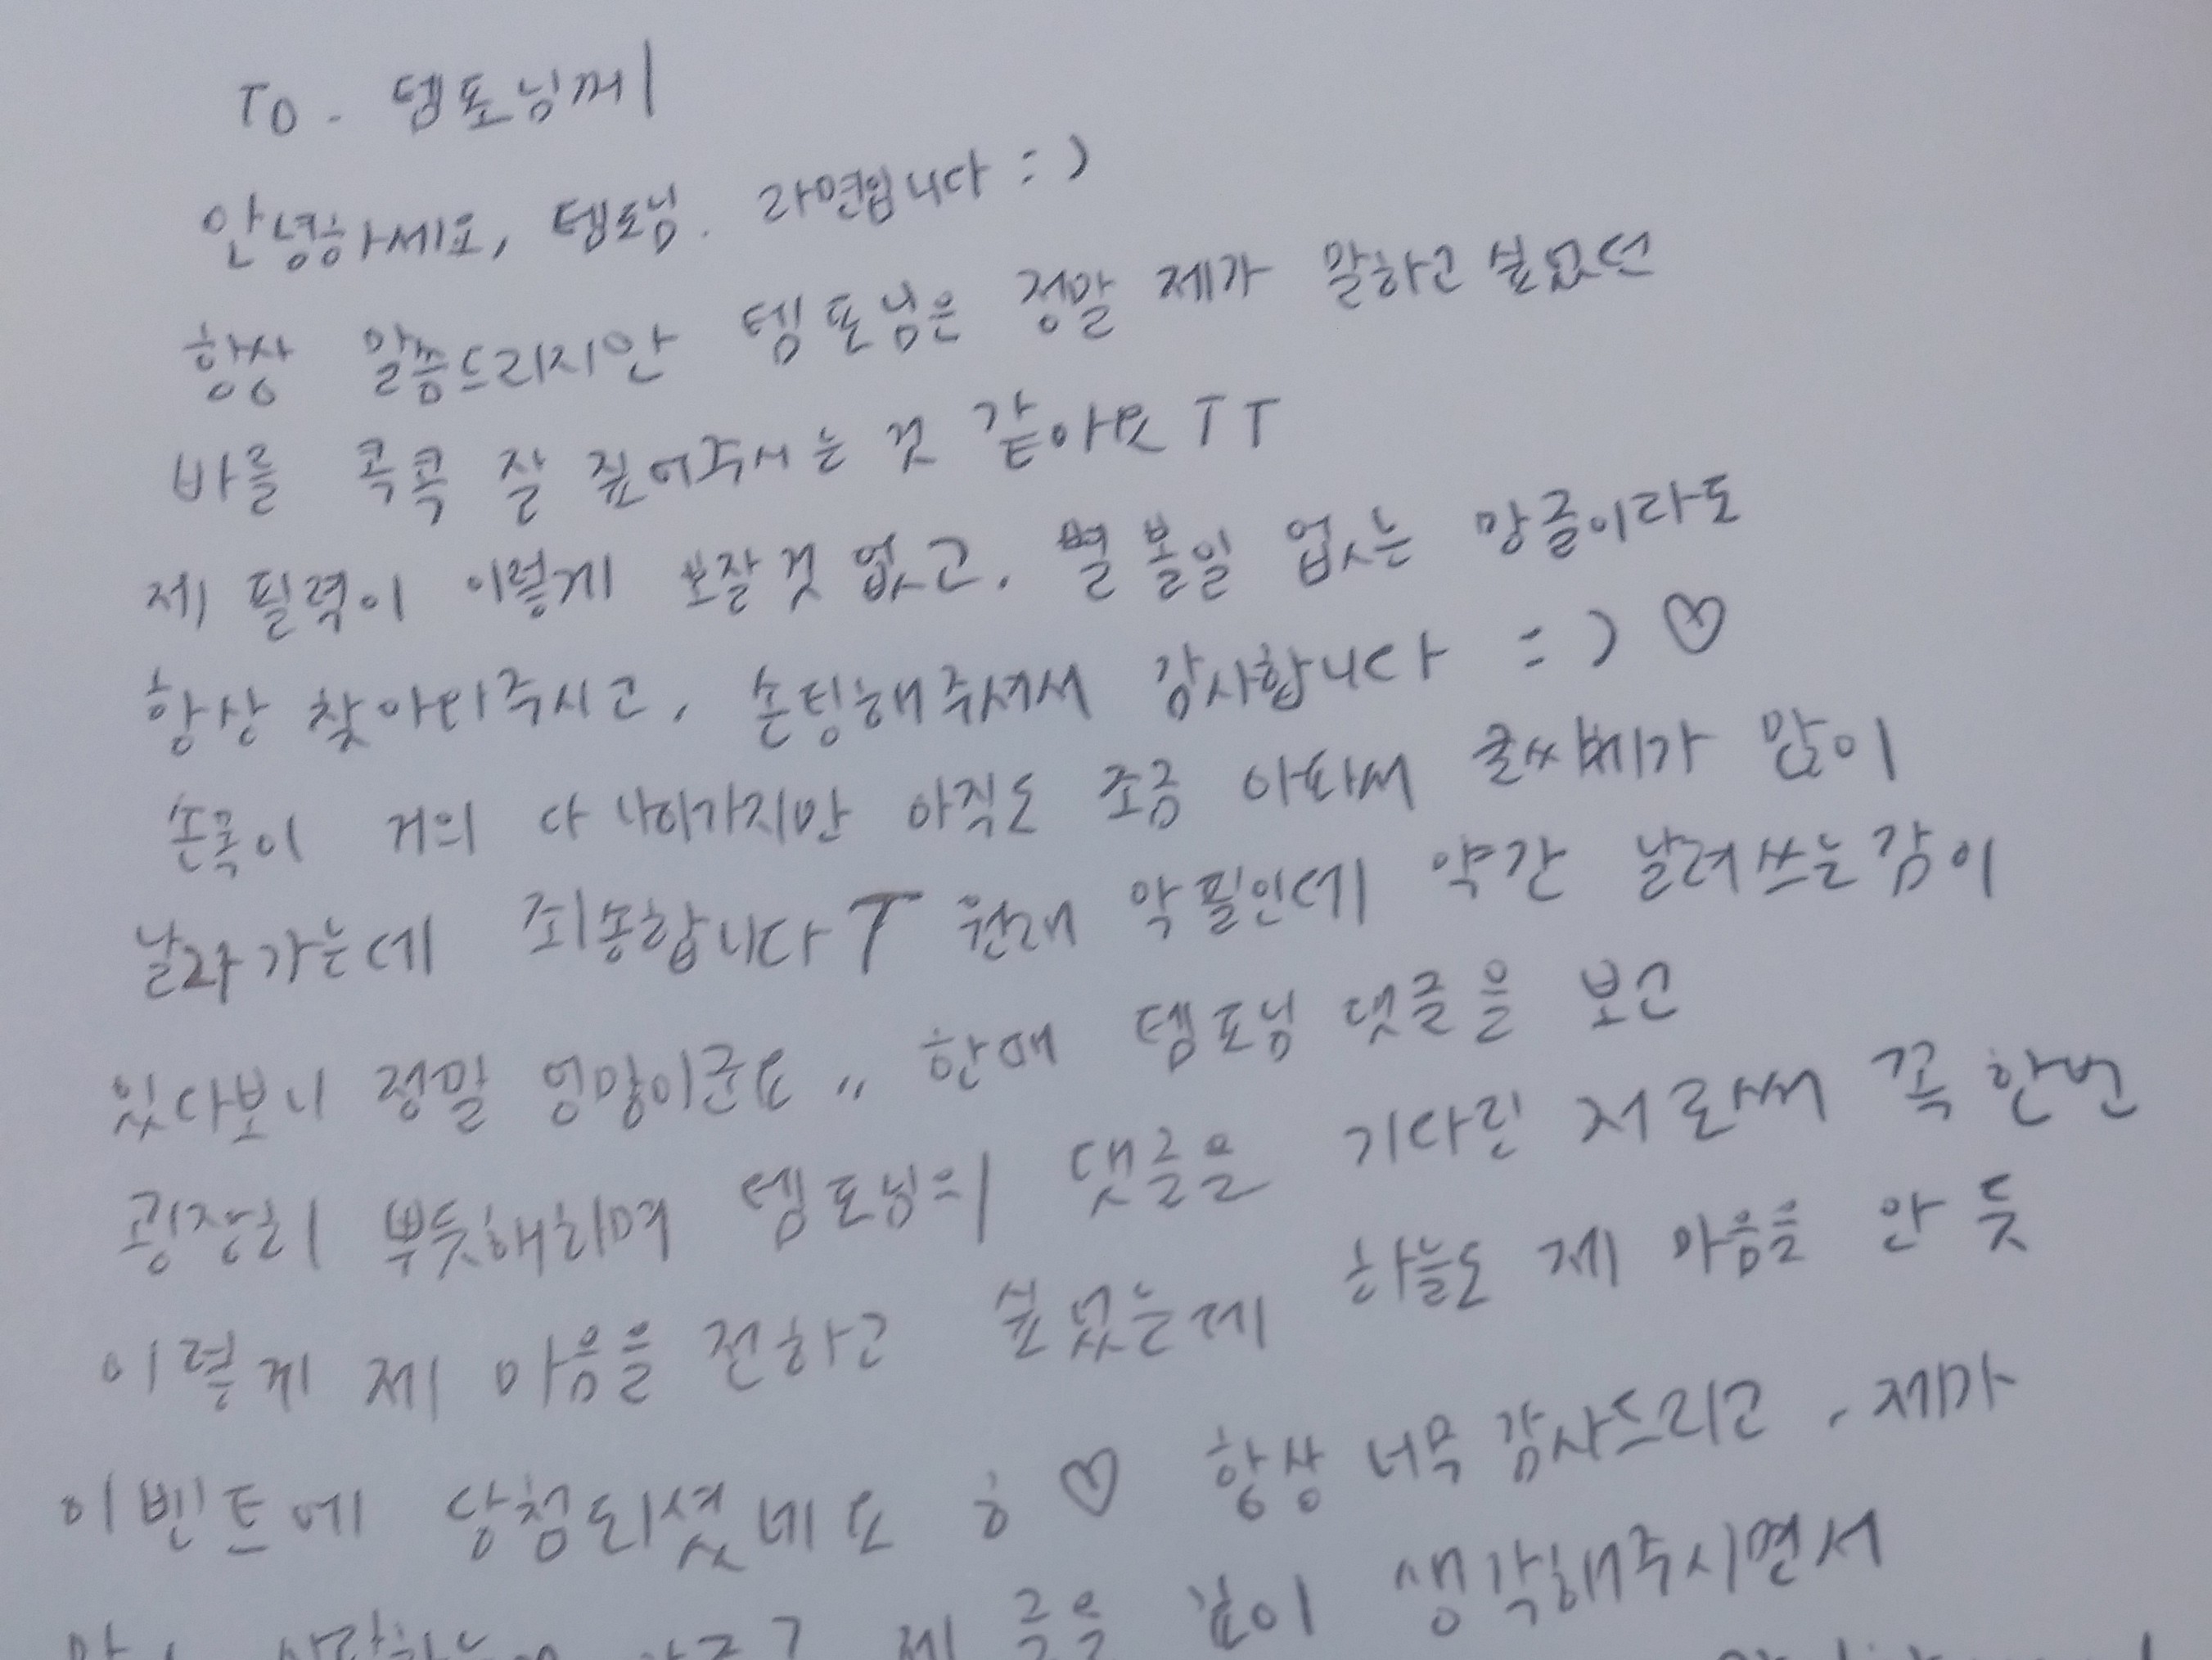 To. 뎀포님께
안녕하세요, 템포님. 라면입니다 :)
항상 말씀드리지만 템포님은 정말 제가 말하고 싶었던
바를 콕콕 잘 짚어주시는 것 같아요 TT
제 필력이 이렇게 보잘것 없고, 별 볼일 없는 망글이라도
항상 찾아와주시고, 손팅해주셔서 감사합니다 :) ♡
손목이 거의 다 나아가지만 아직도 조금 아파서 글씨체가 많이
날라가는데 죄송합니다 T 원래 악필인데 약간 날려쓰는감이
있다보니 정말 엉망이군요 〃 한때 템포님 댓글을 보고
굉장히 뿌듯해하며 템포님의 댓글을 기다린 저로써 꼭 한번
이렇게 제 마음을 전하고 싶었는데 하늘도 제 마음을 안 듯
이벤트에 당첨되셨네요 ㅎ ♡ 항상 너무 감사드리고, 제가
제 글을 깊이 생각해주시면서